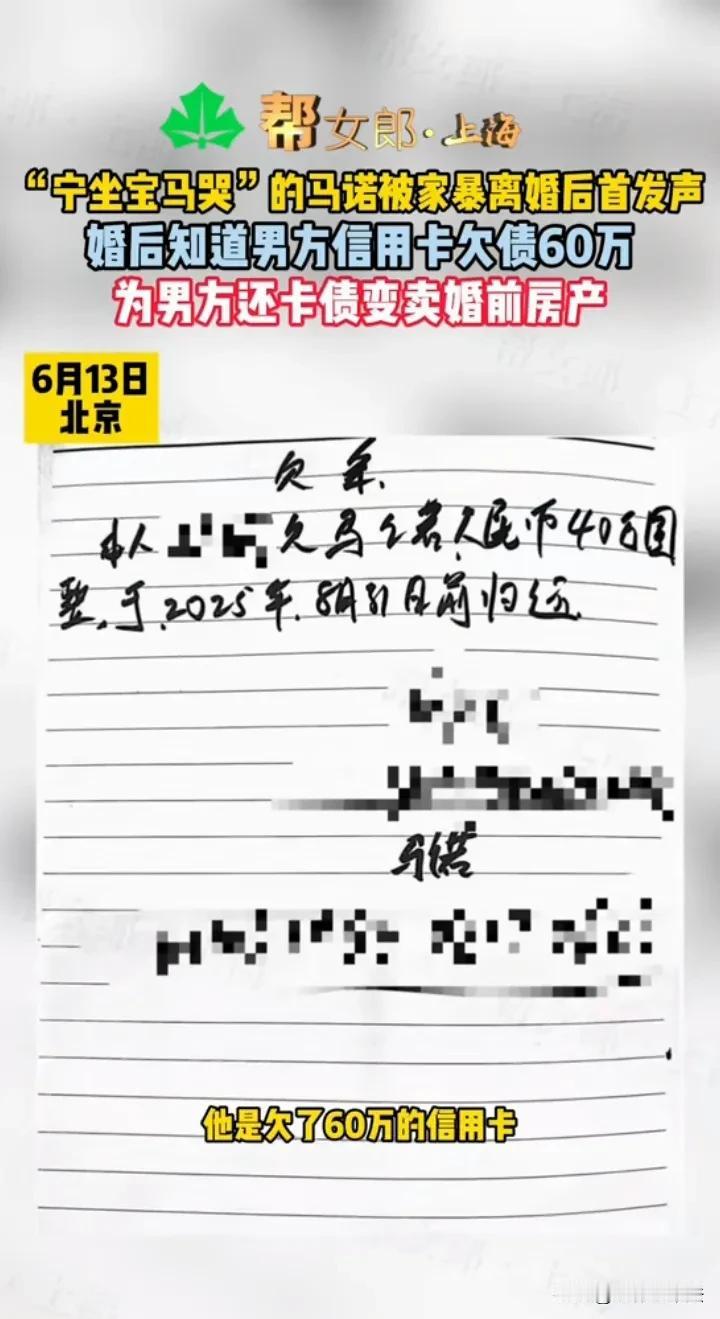 帮女郎·上海
“宁坐宝马哭”的马诺被家暴离婚后首发声
婚后知道男方信用卡欠债60万
为男方还卡债变卖婚前房产
6月13日
北京
欠条
本人 欠马诺人民币40万圆
整,于2025年8月31日前归还
马诺
他是欠了60万的信用卡